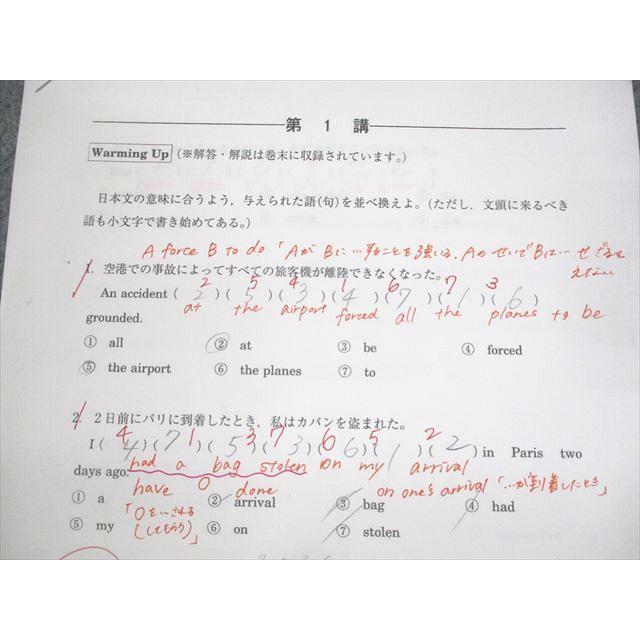 第 1 講
Warming Up (※解答・解説は巻末に収録されています。)
日本文の意味に合うよう,与えられた語(句)を並べ換えよ。(ただし,文頭に来るべき
語も小文字で書き始めてある。)
A force B to do 「AがBに…することを強いる、AのせいでBは…せざるを
えない
1. 空港での事故によってすべての旅客機が離陸できなくなった。
2 5 4 1 6 7 3
An accident ( 2 )( 5 )( 3 )( 4 )( 7 )( 1 )( 6 )
at the airport forced all the planes to be
grounded.
① all ② at ③ be ④ forced
⑤ the airport ⑥ the planes ⑦ to
2. 2日前にパリに到着したとき,私はカバンを盗まれた。
4 1 3 7 6 5 2
I ( 4 )( 7 )( 5 )( 3 )( 6 )( 1 )( 2 ) in Paris two
days ago. had a bag stolen on my arrival
have O done on one's arrival 「…が到着したとき」
① a ② arrival ③ bag ④ had
「Oを…される
(してもらう)」
⑤ my ⑥ on ⑦ stolen